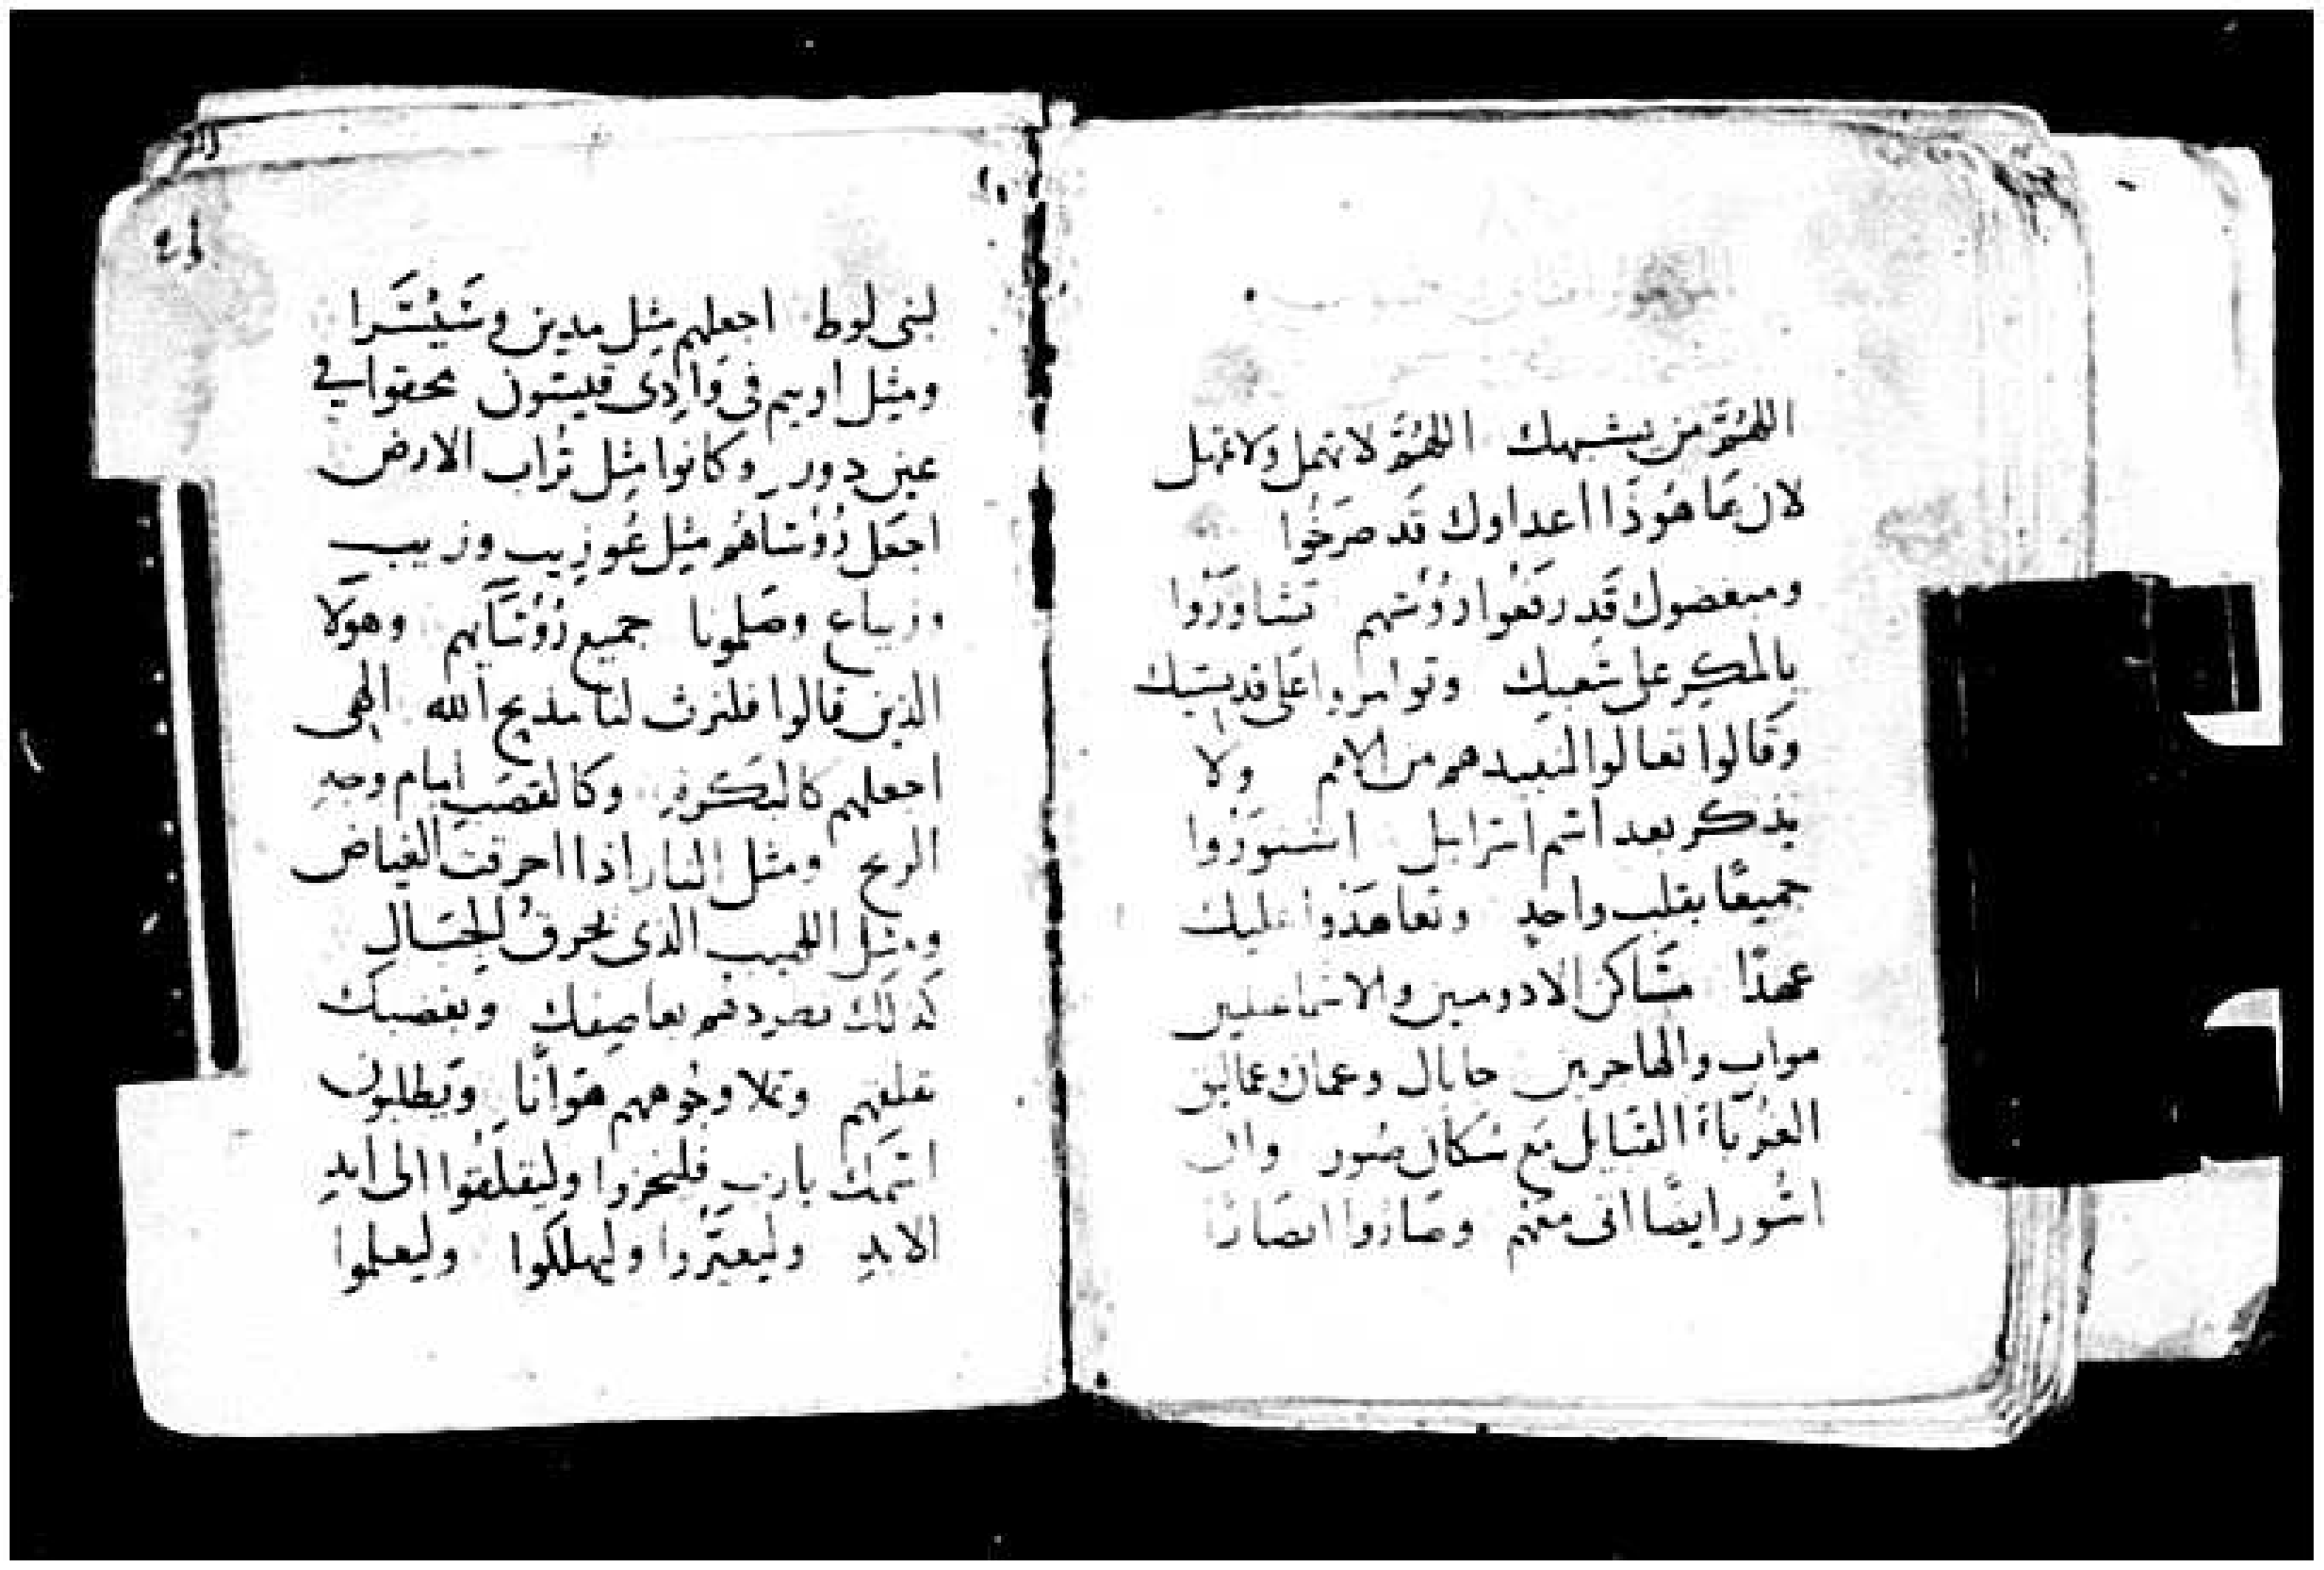 اللهُمَّ من يشبهك اللهُمَّ لا تهمل ولا تمهل
لان ها هُوَذَا اعداوك قَد صَرَخُوا
ومبغضوك قَد رَفَعُوا رؤُسَهم تشَاوَرُوا
بالمكر على شَعبِك وتوامروا عَلى قديسيك
وَقَالوا تعالوا لنبيدهم من الامم ولا
يذكر بعد اسم اسرايل اشتورُوا
جميعًا بقلب واحدٍ وتعاهَدُوا عليك
عهدًا مسَاكن الادوميين والاسماعيليين
مواب والهاجريين جابال وعمان وعماليق
الغُرَبَاءَ القبايل مَع سُكان صُور وان
اشور ايضًا اتى معَهم وصَارُوا انصَارًا
لبنى لوط اجعلهم مثل مدين وسَيْسَرا
ومثل اوبيم فى وَادِى قيسون محقوا في
عين دور وكانوا مثل تُراب الارض
اجعَل رُؤسَاهُم مثل عُوزيب وزيب
وزيباع وصَلمونا جميع رُؤسَايهم وهَولا
الذين قالوا فلنرث لنا مذبح الله الهى
اجعلهم كالبَكرةِ وكالقصَب امام وجهِ
الريح ومثل النار اذا احرقت الغياض
ومثل اللهيب الذى يحرقُ الجبَال
كذلك تطردهُم بعاصِفك وبغضبك
تقلقهم وتملا وجُوههم هَوَانًا ويَطلبون
اسمك يارب فليخزوا وليقلَقُوا الى ابدِ
الابدِ وليعيَّرُوا وليهلكوا وليعلموا